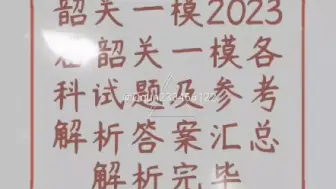 韶关一模2023
韶关一模各
科试题及参考
解析答案汇总
解析完毕